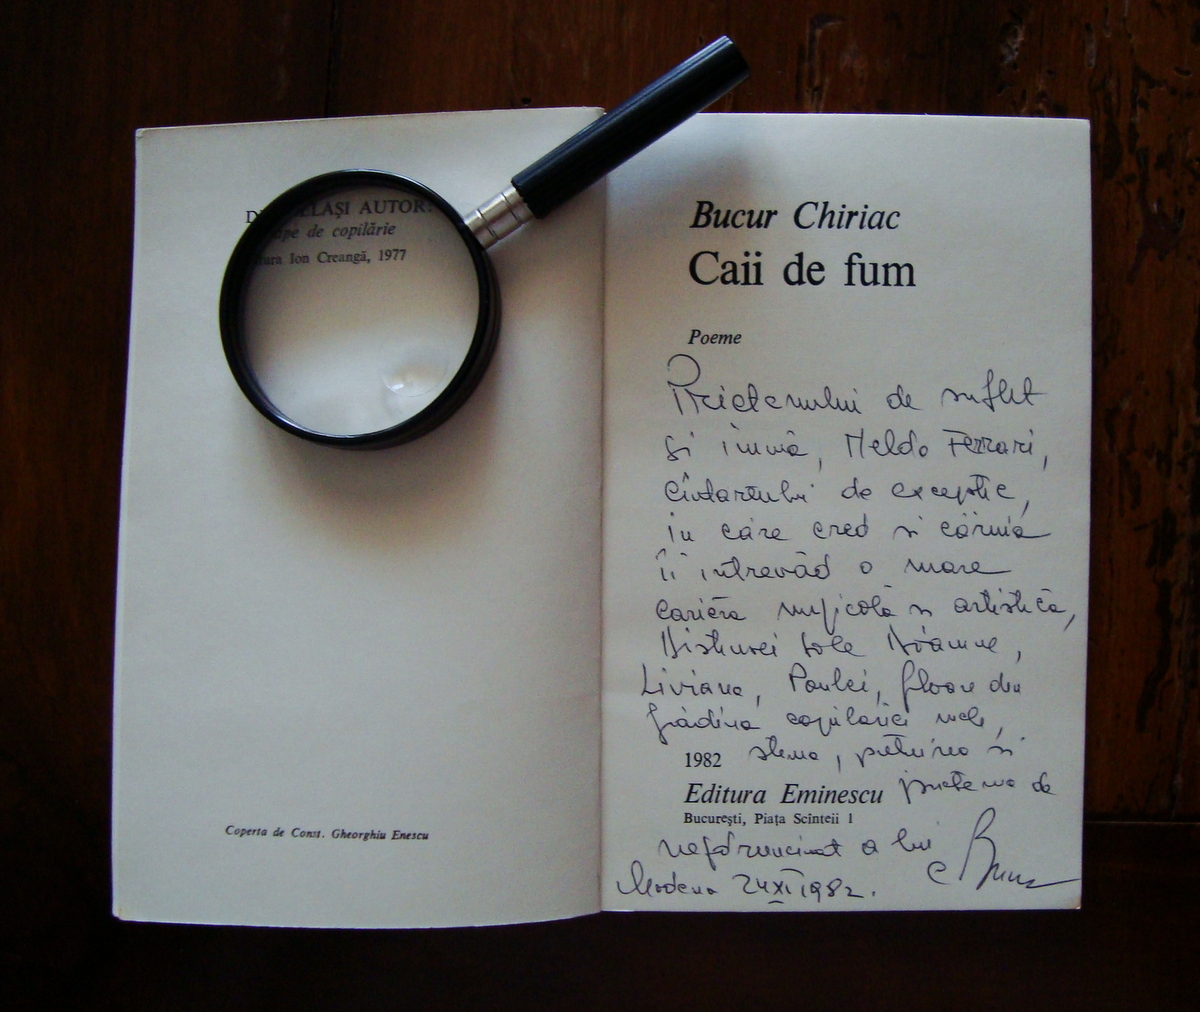 D LAȘI AUTOR:
pe de copilărie
ura Ion Creangă, 1977
Coperta de Const. Gheorghiu Enescu
Bucur Chiriac
Caii de fum
Poeme
Prietenului de suflet
și inimă, Meldo Ferrari,
cîntărețului de excepție,
în care cred și căruia
îi întrevăd o mare
carieră muzicală și artistică,
Distinsei sale Doamne,
Liviana, Paulei, floare din
grădina copilăriei mele,
1982 stima, prețuirea și
Editura Eminescu prietenia de
București, Piața Scînteii 1
nezdruncinat a lui
Modena 24 XI 1982.